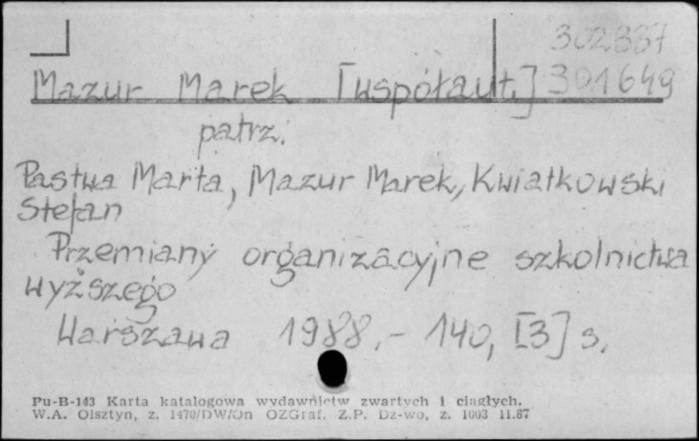 302337
Mazur Marek [współaut.] 301649
patrz.
Pastwa Marta, Mazur Marek, Kwiatkowski
Stefan
Przemiany organizacyjne szkolnictwa
wyższego
Warszawa 1988.- 140, [3] s.
Pu-B-143 Karta katalogowa wydawnictw zwartych i ciągłych.
W.A. Olsztyn, z. 1470/DW/On OZGraf. Z.P. Dz-wo, z. 1003 11.87